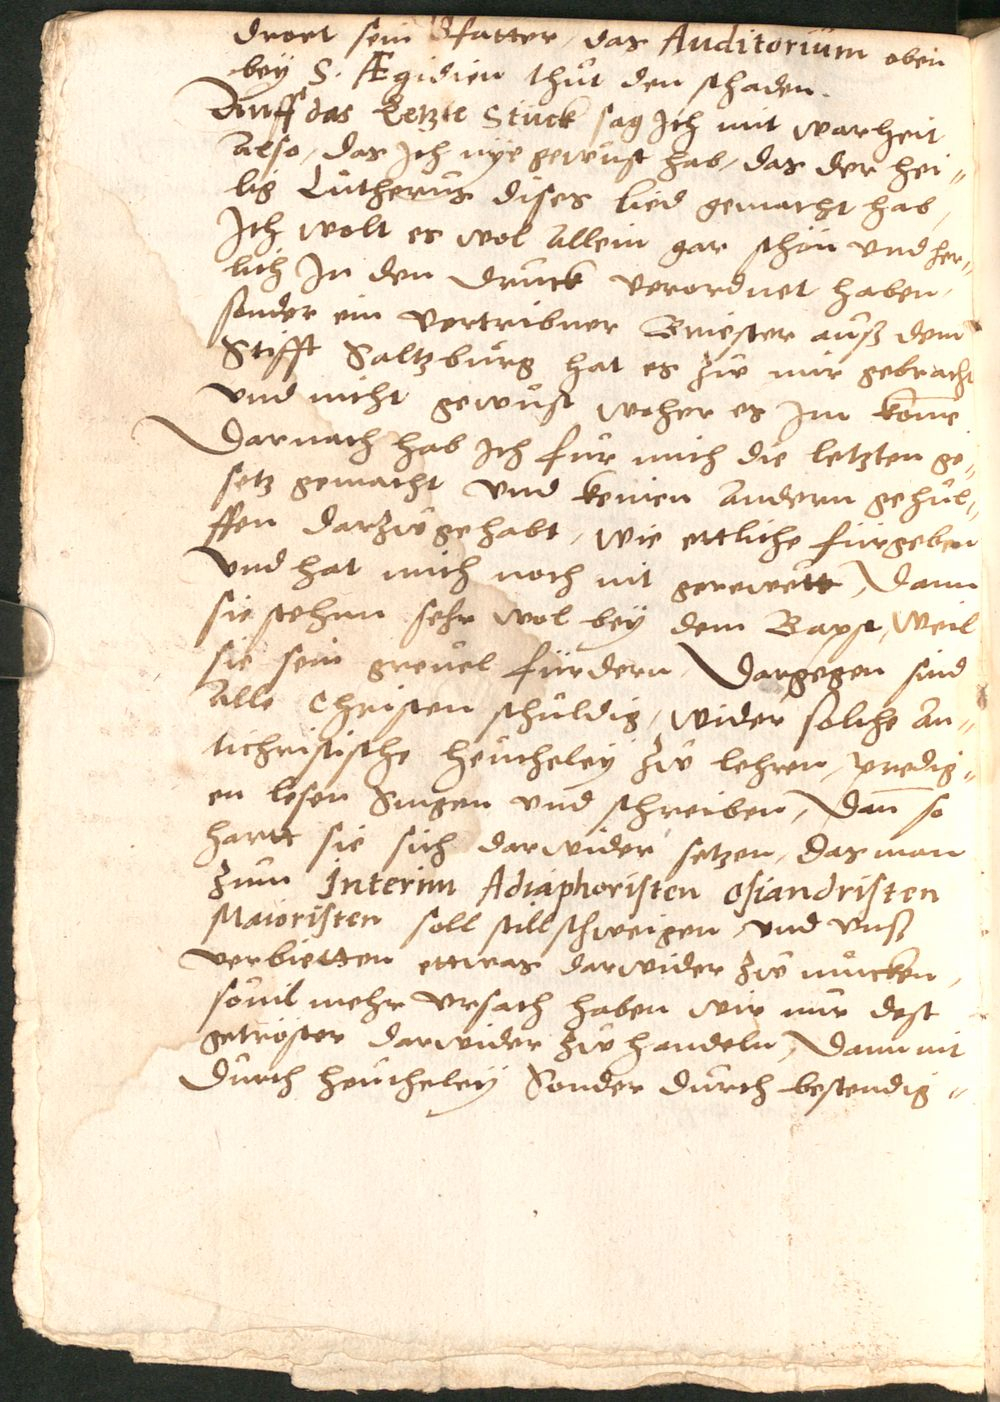 drort sein Gfatter, das Auditorium oben
bey S. Ægidien thut den schaden.
Auff das Letzte Stuck sag Ich mit warheit
Also, das Ich nye gewust hab, das der hei=
lig Lutherus dises lied gemacht hab,
Ich wolt es wol allein gar schön und her=
lich In den Druck verordnet haben,
sonder ein vertribner Briester auß dem
Stifft Saltzburg hat es zu mir gebracht
und nicht gewust woher es Im kome
Darnach hab Ich für mich die letzten ge=
setz gemacht und keinen andern gehül=
ffen darzu gehabt, wie ettliche fürgeben
und hat mich noch nit gerewett, Dann
sie stehnn sehr wol bey dem Bapst, weil
sie sein greuel fürdern, Dargegen sind
Alle Christen schuldig, wider solche an=
tichristische heucheley zu lehren, predig=
en lesen Singen und schreiben, Dan so
hartt sie sich darwider setzen, das man
zum Interim Adiaphoristen Osiandristen
Maioristen soll stillschweigen und unß
verbietten ettwas darwider zu mucken,
souil mehr ursach haben wir nur dest
getröster darwider zu handeln, Dann nit
Durch heucheley Sonder durch bestendig=